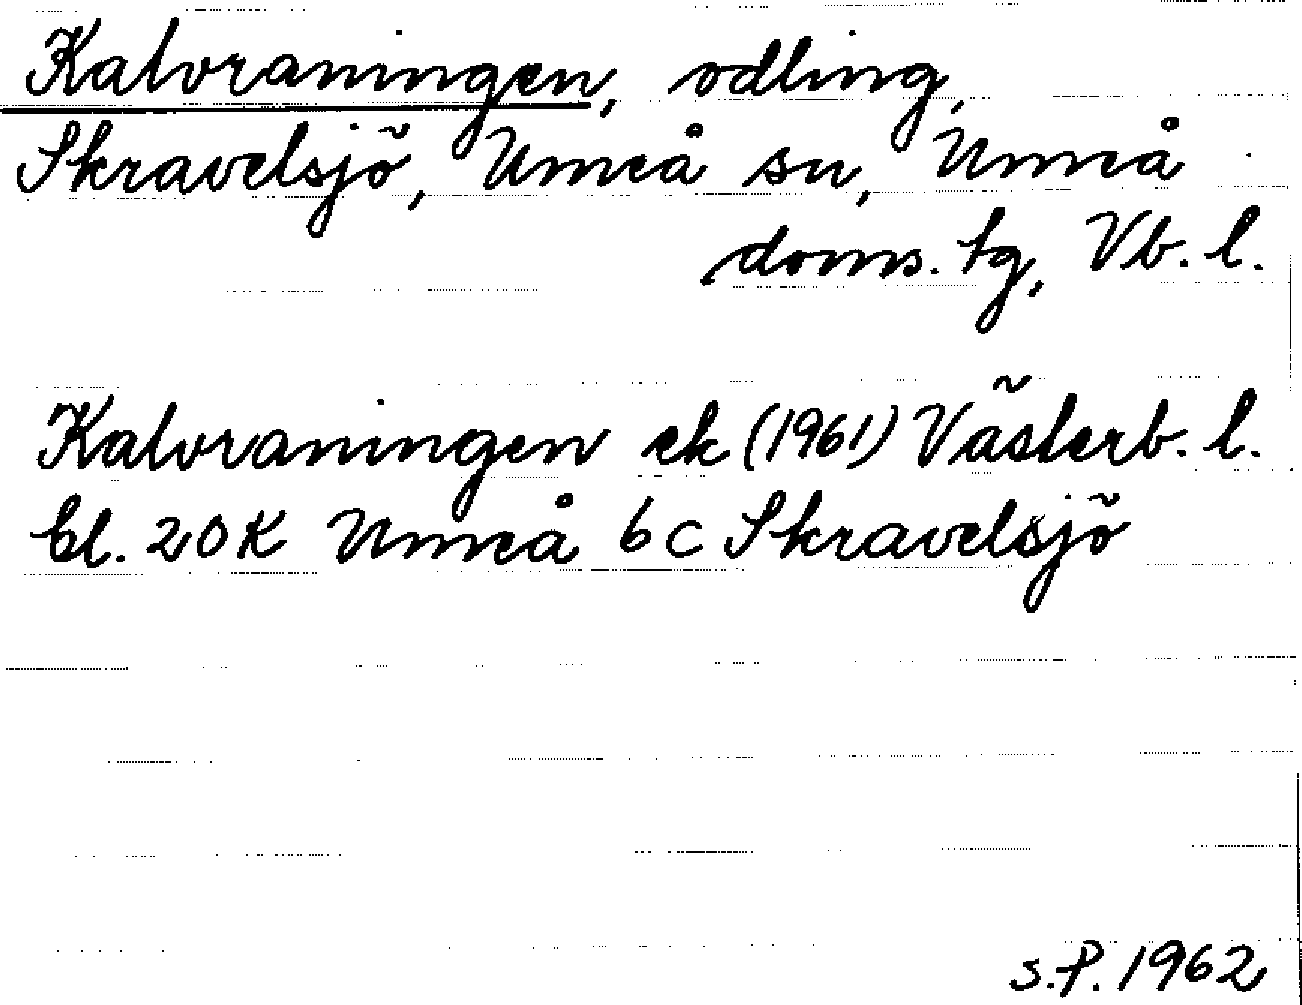 Kalvraningen, odling,
Skravelsjö, Umeå sn, Umeå
doms. tg, Vb. l.
Kalvraningen ek (1961) Västerb. l.
bl. 20K Umeå 6c Skravelsjö
S.P. 1962